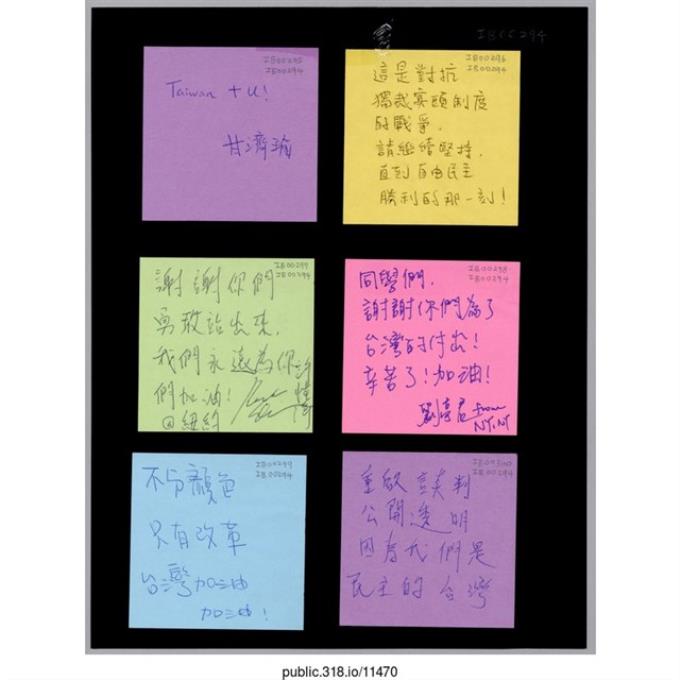 IB00294
IB00295
IB00294
Taiwan + U!
甘濟瑜
IB00296
IB00294
這是對抗
獨裁寡頭制度
的戰爭,
請繼續堅持,
直到自由民主
勝利的那一刻!
IB00297
IB00294
謝謝你們
勇敢站出來,
我們永遠為你
們加油!
@紐約
IB00298
IB00294
同學們,
謝謝你們為了
台灣的付出!
辛苦了!加油!
from
NY.NY
IB00299
IB00294
不分顏色
只有改革
台灣加油
加油!
IB00300
IB00294
重啟談判
公開透明
因為我們是
民主的台灣
public.318.io/11470